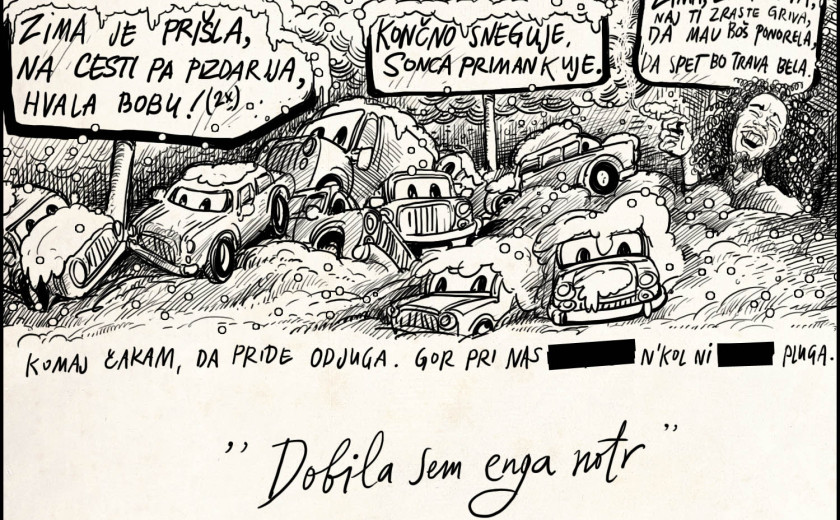 ZIMA JE PRIŠLA,
NA CESTI PA PIZDARIJA,
HVALA BOBU! (2x)
KONČNO SNEGUJE,
SONCA PRIMANKUJE.
NAJ TI ZRASTE GRIVA,
DA MAU BOŠ PONORELA,
DA SPET BO TRAVA BELA.
KOMAJ ČAKAM, DA PRIDE ODJUGA. GOR PRI NAS N'KOL NI PLUGA.
"Dobila sem enga notr"